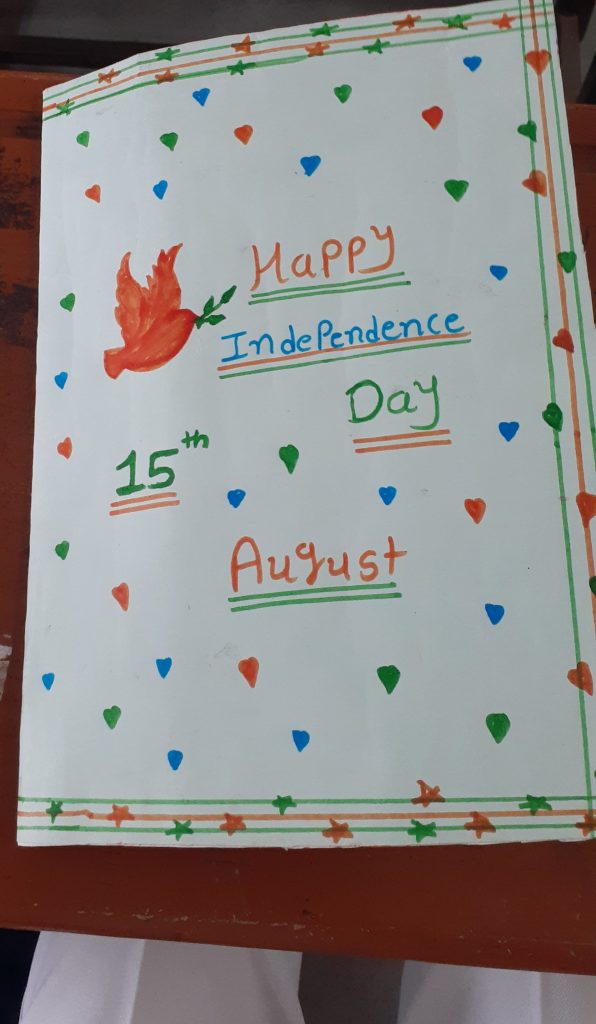 Happy
Independence
Day
15th
August